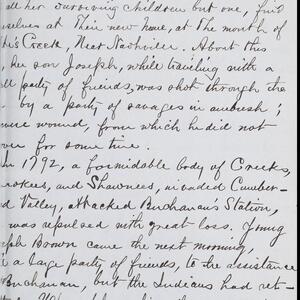 all her surviving children but one, find
selves at their new home, at the mouth of
's Creek, near Nashville. About this
, her son Joseph, while traveling with a
all party of friends, was shot through the
by a party of savages in ambush;
wound, from which he did not
ver for some time.
In 1792, a formidable body of Creeks,
rokees, and Shawnees, invaded Cumber-
d Valley, attacked Buchanan's Station,
was repulsed with great loss. Young
eph Brown came the next morning,
a large party of friends, to the assistance
Buchanan, but the Indians had ret-